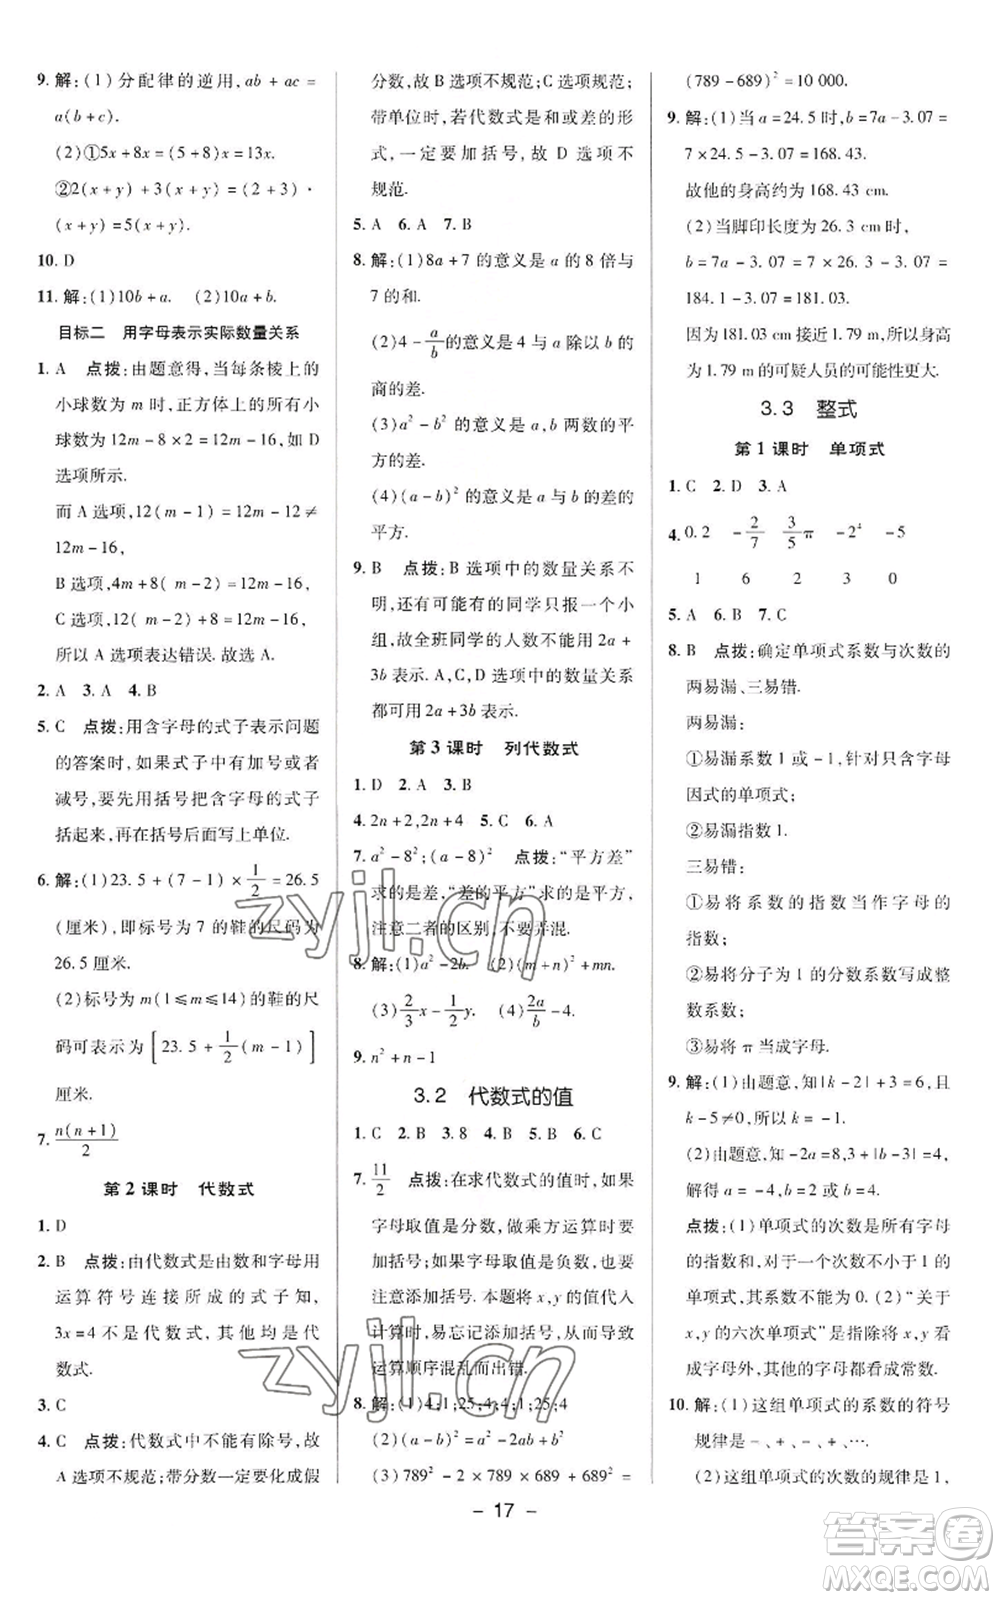 9. 解:(1)分配律的逆用,ab+ac=
a(b+c).
(2)①5x+8x=(5+8)x=13x.
②2(x+y)+3(x+y)=(2+3)·
(x+y)=5(x+y).
10. D
11. 解:(1)10b+a. (2)10a+b.
目标二 用字母表示实际数量关系
1. A 点拨:由题意得,当每条棱上的
小球数为 m 时,正方体上的所有小
球数为 12m-8×2=12m-16,如 D
选项所示.
而 A 选项,12(m-1)=12m-12≠
12m-16,
B 选项,4m+8(m-2)=12m-16,
C 选项,12(m-2)+8=12m-16,
所以 A 选项表达错误. 故选 A.
2. A 3. A 4. B
5. C 点拨:用含字母的式子表示问题
的答案时,如果式子中有加号或者
减号,要先用括号把含字母的式子
括起来,再在括号后面写上单位.
6. 解:(1)23.5+(7-1)×1/2=26.5
(厘米),即标号为 7 的鞋的尺码为
26.5 厘米.
(2)标号为 m(1≤m≤14)的鞋的尺
码可表示为[23.5+1/2(m-1)]
厘米.
7. n(n+1)/2
第 2 课时 代数式
1. D
2. B 点拨:由代数式是由数和字母用
运算符号连接所成的式子知,
3x=4 不是代数式,其他均是代
数式.
3. C
4. C 点拨:代数式中不能有除号,故
A 选项不规范;带分数一定要化成假
分数,故 B 选项不规范;C 选项规范;
带单位时,若代数式是和或差的形
式,一定要加括号,故 D 选项不
规范.
5. A 6. A 7. B
8. 解:(1)8a+7 的意义是 a 的 8 倍与
7 的和.
(2)4-a/b的意义是 4 与 a 除以 b 的
商的差.
(3)a²-b² 的意义是 a,b 两数的平
方的差.
(4)(a-b)² 的意义是 a 与 b 的差的
平方.
9. B 点拨:B 选项中的数量关系不
明,还有可能有的同学只报一个小
组,故全班同学的人数不能用 2a+
3b 表示. A,C,D 选项中的数量关系
都可用 2a+3b 表示.
第 3 课时 列代数式
1. D 2. A 3. B
4. 2n+2,2n+4 5. C 6. A
7. a²-8²;(a-8)² 点拨:“平方差”
求的是差,“差的平方”求的是平方,
注意二者的区别,不要弄混.
8. 解:(1)a²-2b. (2)(m+n)²+mn.
(3)2/3x-1/2y. (4)2a/b-4.
9. n²+n-1
3.2 代数式的值
1. C 2. B 3. 8 4. B 5. B 6. C
7. 11/2 点拨:在求代数式的值时,如果
字母取值是分数,做乘方运算时要
加括号;如果字母取值是负数,也要
注意添加括号. 本题将 x,y 的值代入
计算时,易忘记添加括号,从而导致
运算顺序混乱而出错.
8. 解:(1)4;1;25;4;4;1;25;4
(2)(a-b)²=a²-2ab+b².
(3)789²-2×789×689+689²=
(789-689)²=10 000.
9. 解:(1)当 a=24.5 时,b=7a-3.07=
7×24.5-3.07=168.43.
故他的身高约为 168.43 cm.
(2)当脚印长度为 26.3 cm 时,
b=7a-3.07=7×26.3-3.07=
184.1-3.07=181.03.
因为 181.03 cm 接近 1.79 m,所以身高
为 1.79 m 的可疑人员的可能性更大.
3.3 整式
第 1 课时 单项式
1. C 2. D 3. A
4. 0.2 -2/7 3/5π -2⁴ -5
1 6 2 3 0
5. A 6. B 7. C
8. B 点拨:确定单项式系数与次数的
两易漏、三易错.
两易漏:
①易漏系数 1 或-1,针对只含字母
因式的单项式;
②易漏指数 1.
三易错:
①易将系数的指数当作字母的
指数;
②易将分子为 1 的分数系数写成整
数系数;
③易将 π 当成字母.
9. 解:(1)由题意,知|k-2|+3=6,且
k-5≠0,所以 k=-1.
(2)由题意,知-2a=8,3+|b-3|=6,
解得 a=-4,b=0 或 6.
点拨:(1)单项式的次数是所有字母
的指数和,对于一个次数不低于 1 的
单项式,其系数不能为 0. (2)“关于
x,y 的六次单项式”是指除将 x,y
看成字母外,其他的字母都看成常数.
10. 解:(1)这组单项式的系数的符号
规律是-、+、-、+、….
(2)这组单项式的次数的规律是 1,
- 17 -
zyjl.cn
zyjl.cn
答案圈
MXQE.COM